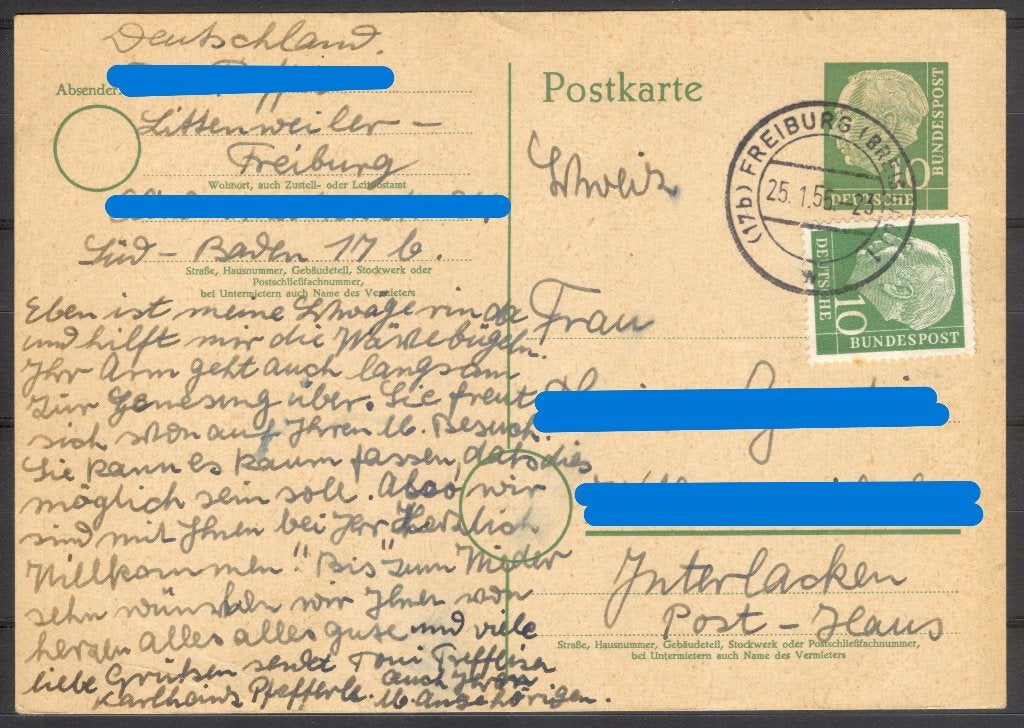 Deutschland.
Absender:
Littenweiler -
Freiburg
Wohnort, auch Zustell- oder Leitpostamt
Süd - Baden 17 b.
Straße, Hausnummer, Gebäudeteil, Stockwerk oder
Postschließfachnummer,
bei Untermietern auch Name des Vermieters
Eben ist meine Schwägerin da
und hilft mir die Wäsche bügeln.
Ihr Arm geht auch langsam
zur Genesung über. Sie freut
sich schon auf Ihren lb. Besuch.
Sie kann es kaum fassen, daß dies
möglich sein soll. Also wir
sind mit Ihnen bei Ihr "Herzlich
Willkommen". "Bis" zum Wieder
sehn wünschen wir Ihnen von
herzen alles alles gute und viele
liebe Grüßen sendet Toni
auch Ihren
Karlheinz Pfefferle. lb Angehörigen.
Postkarte
Schweiz
Frau
Interlacken
Post - Haus
Straße, Hausnummer, Gebäudeteil, Stockwerk oder Postschließfachnummer,
bei Untermietern auch Name des Vermieters
(17b) FREIBURG (BREISG)
25. 1. 55 - 23
1
10
DEUTSCHE
BUNDESPOST
DEUTSCHE
10
BUNDESPOST